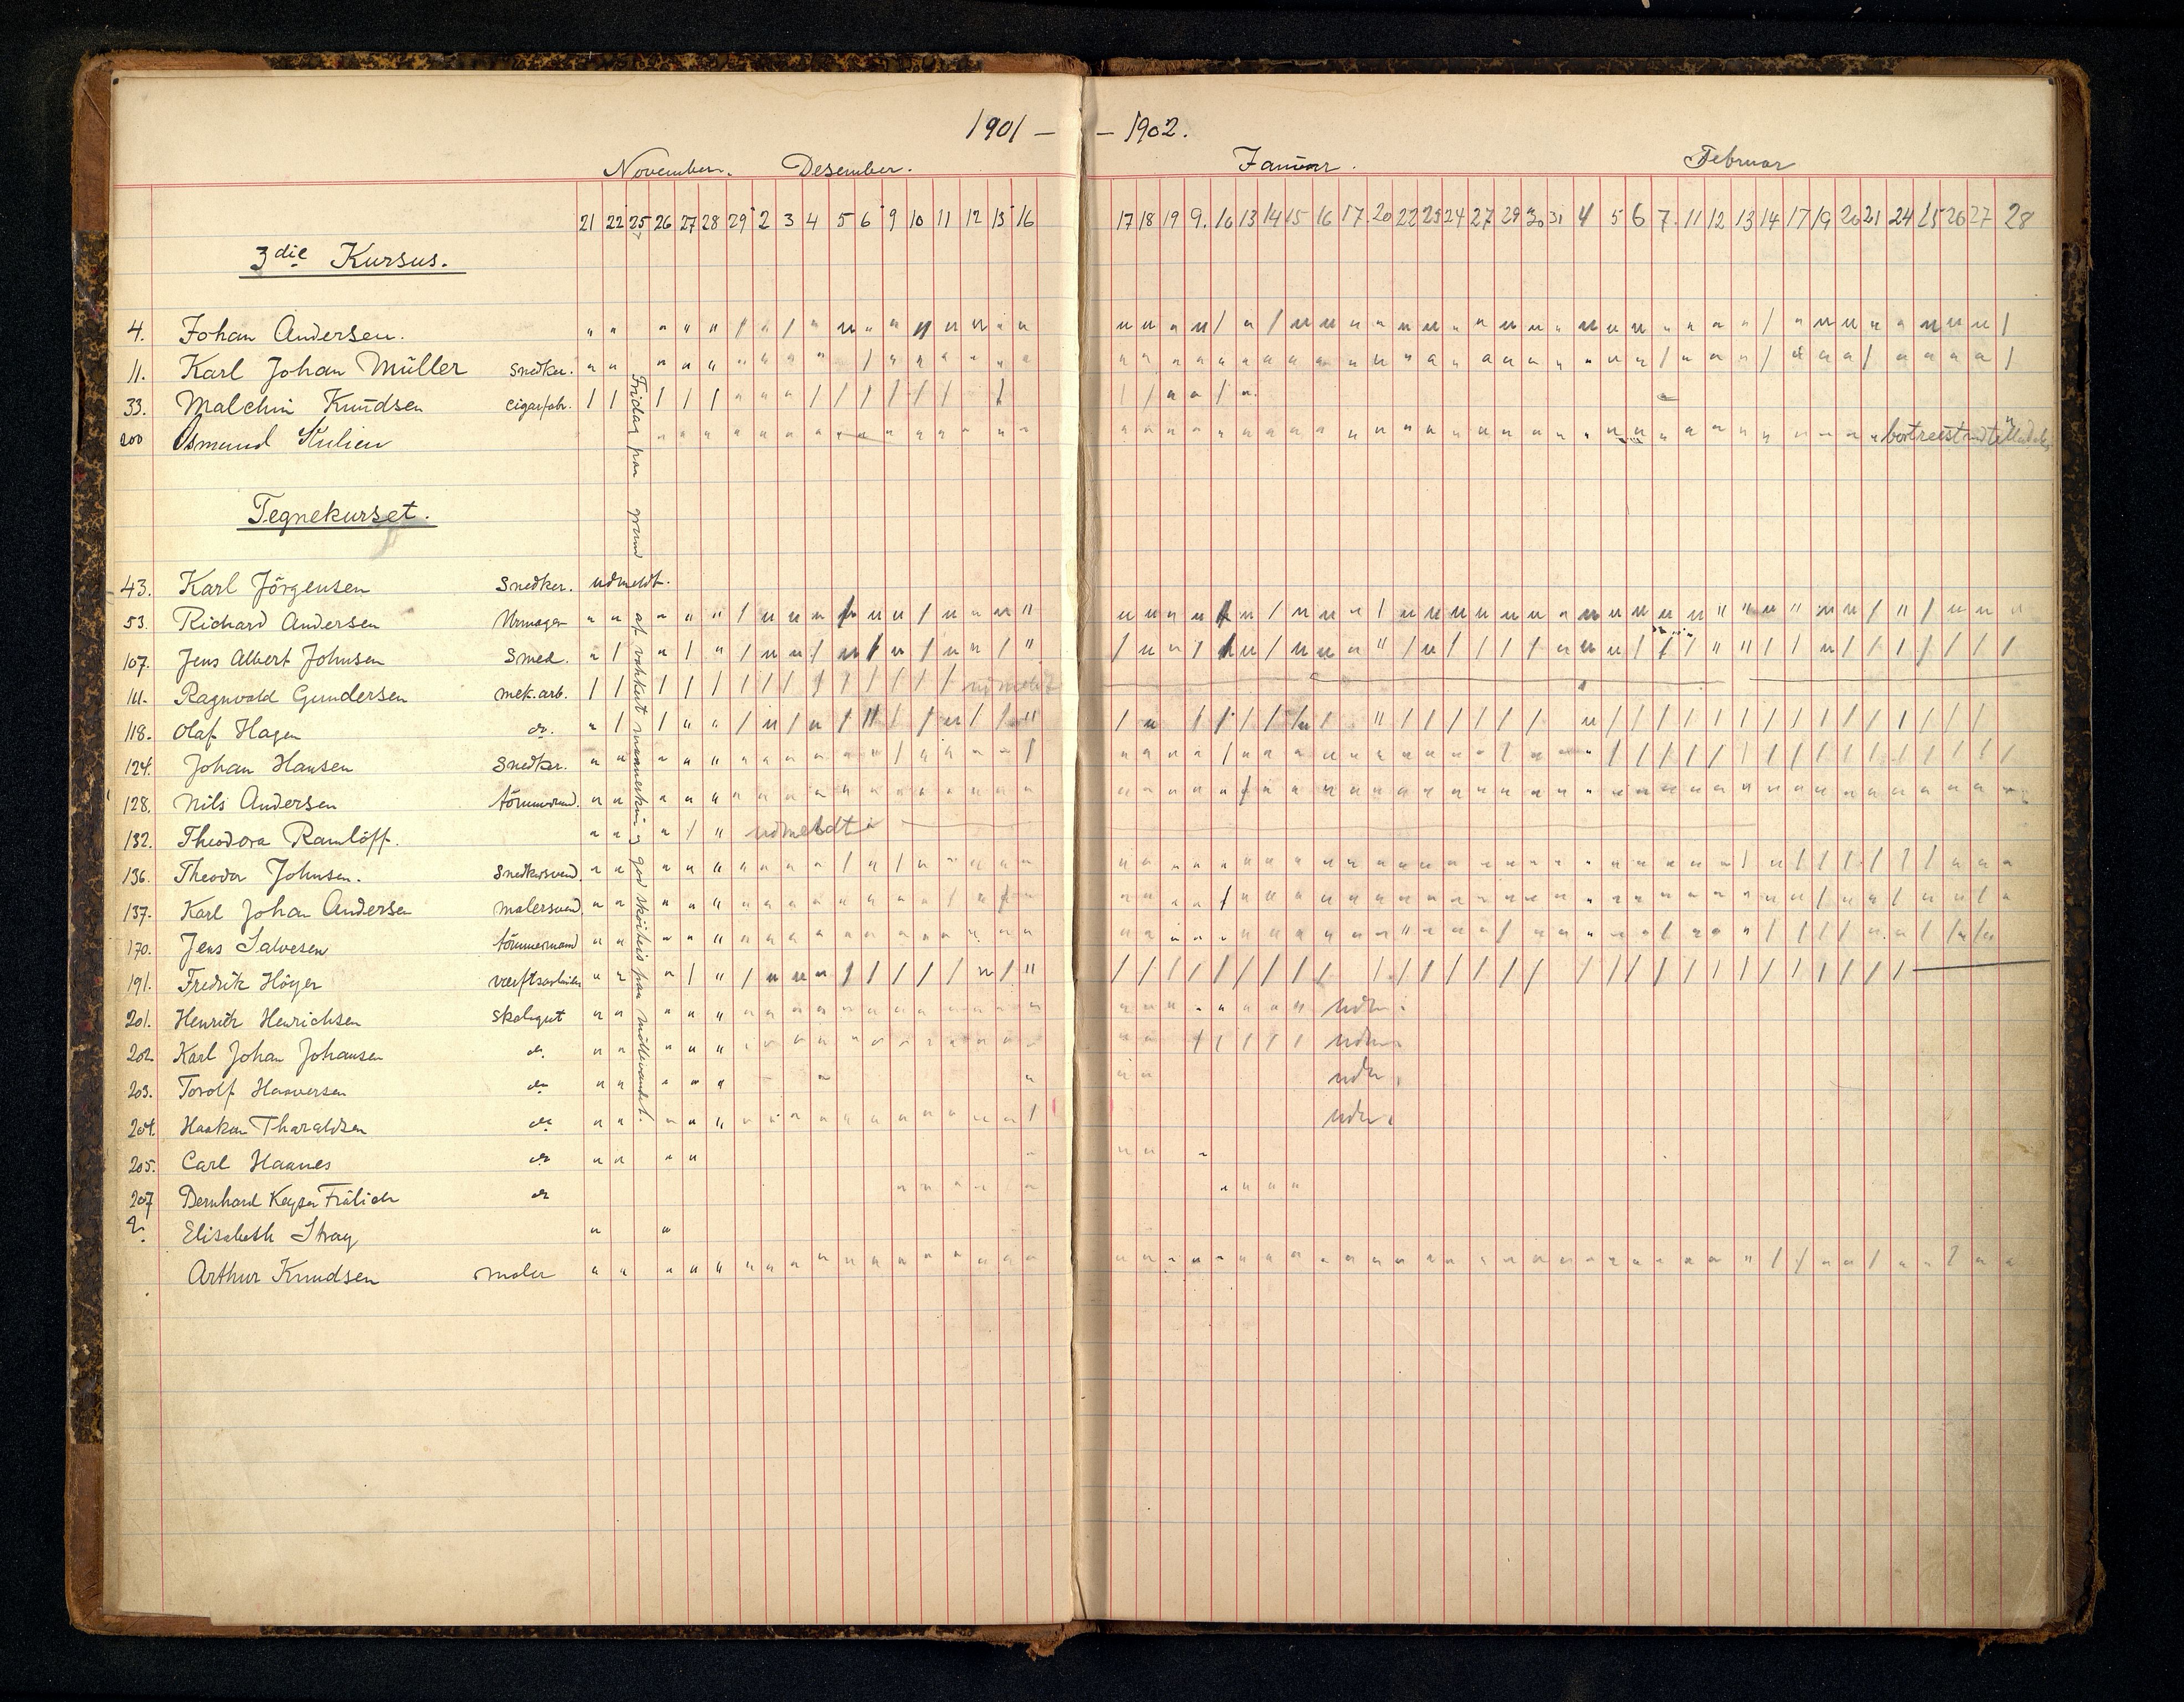 1901 — — 1902.
November. Desember. Januar. Februar
21 22 25 26 27 28 29 2 3 4 5 6 9 10 11 12 13 16 17 18 19 9. 10 13 14 15 16 17. 20 22 23 24 27 29 30 31 4 5 6 7. 11 12 13 14 17 19 20 21 24 25 26 27 28
3die Kursus.
4. Johan Andersen.
11. Karl Johan Müller Snedker.
33. Malchin Knudsen cigarfabr.
200 Osmund
Tegnekurset.
43. Karl Jörgensen Snedker. udmeldt.
53. Richard Andersen Urmager
107. Jens Albert Johnsen Smed.
111. Ragnvald Gundersen mek. arb. udmeldt
118. Olaf Hagen do.
124. Johan Hansen Snedker.
128. Nils Andersen tömmermd.
132. Theodora Ramlöff. udmeldt
136. Theodor Johnsen. Snedkersvend.
137. Karl Johan Andersen malersvend.
170. Jens Salvesen tömmermand
191. Fredrik Höyer værftsarbeider
201. Henrik Henrichsen skolegut udm.
202. Karl Johan Johansen do. udm.
203. Torolf Haaversen do udm.
204. Haakon Tharaldsen do udm.
205. Carl Haanes do
207 Bernhard Keyser Frölich do
Elisabeth Stray
Arthur Knudsen maler
Fridag paa grund af